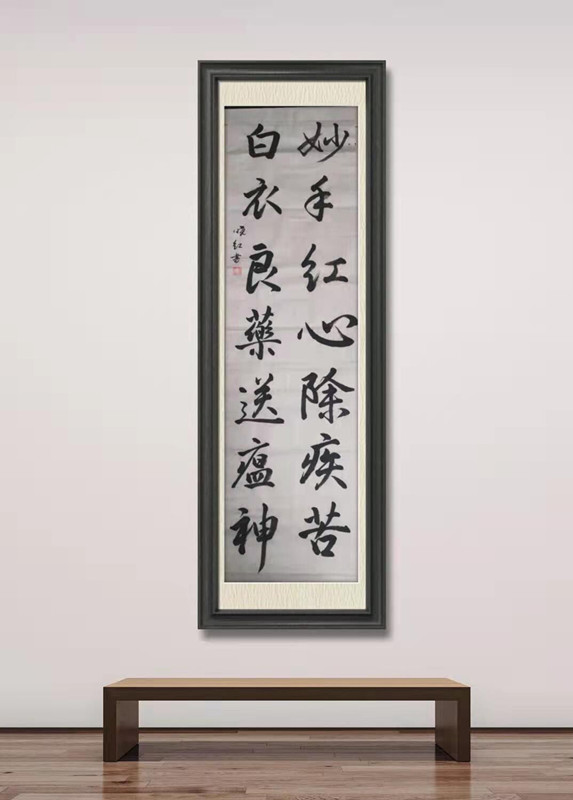 妙手红心除疾苦
白衣良藥送瘟神
红书